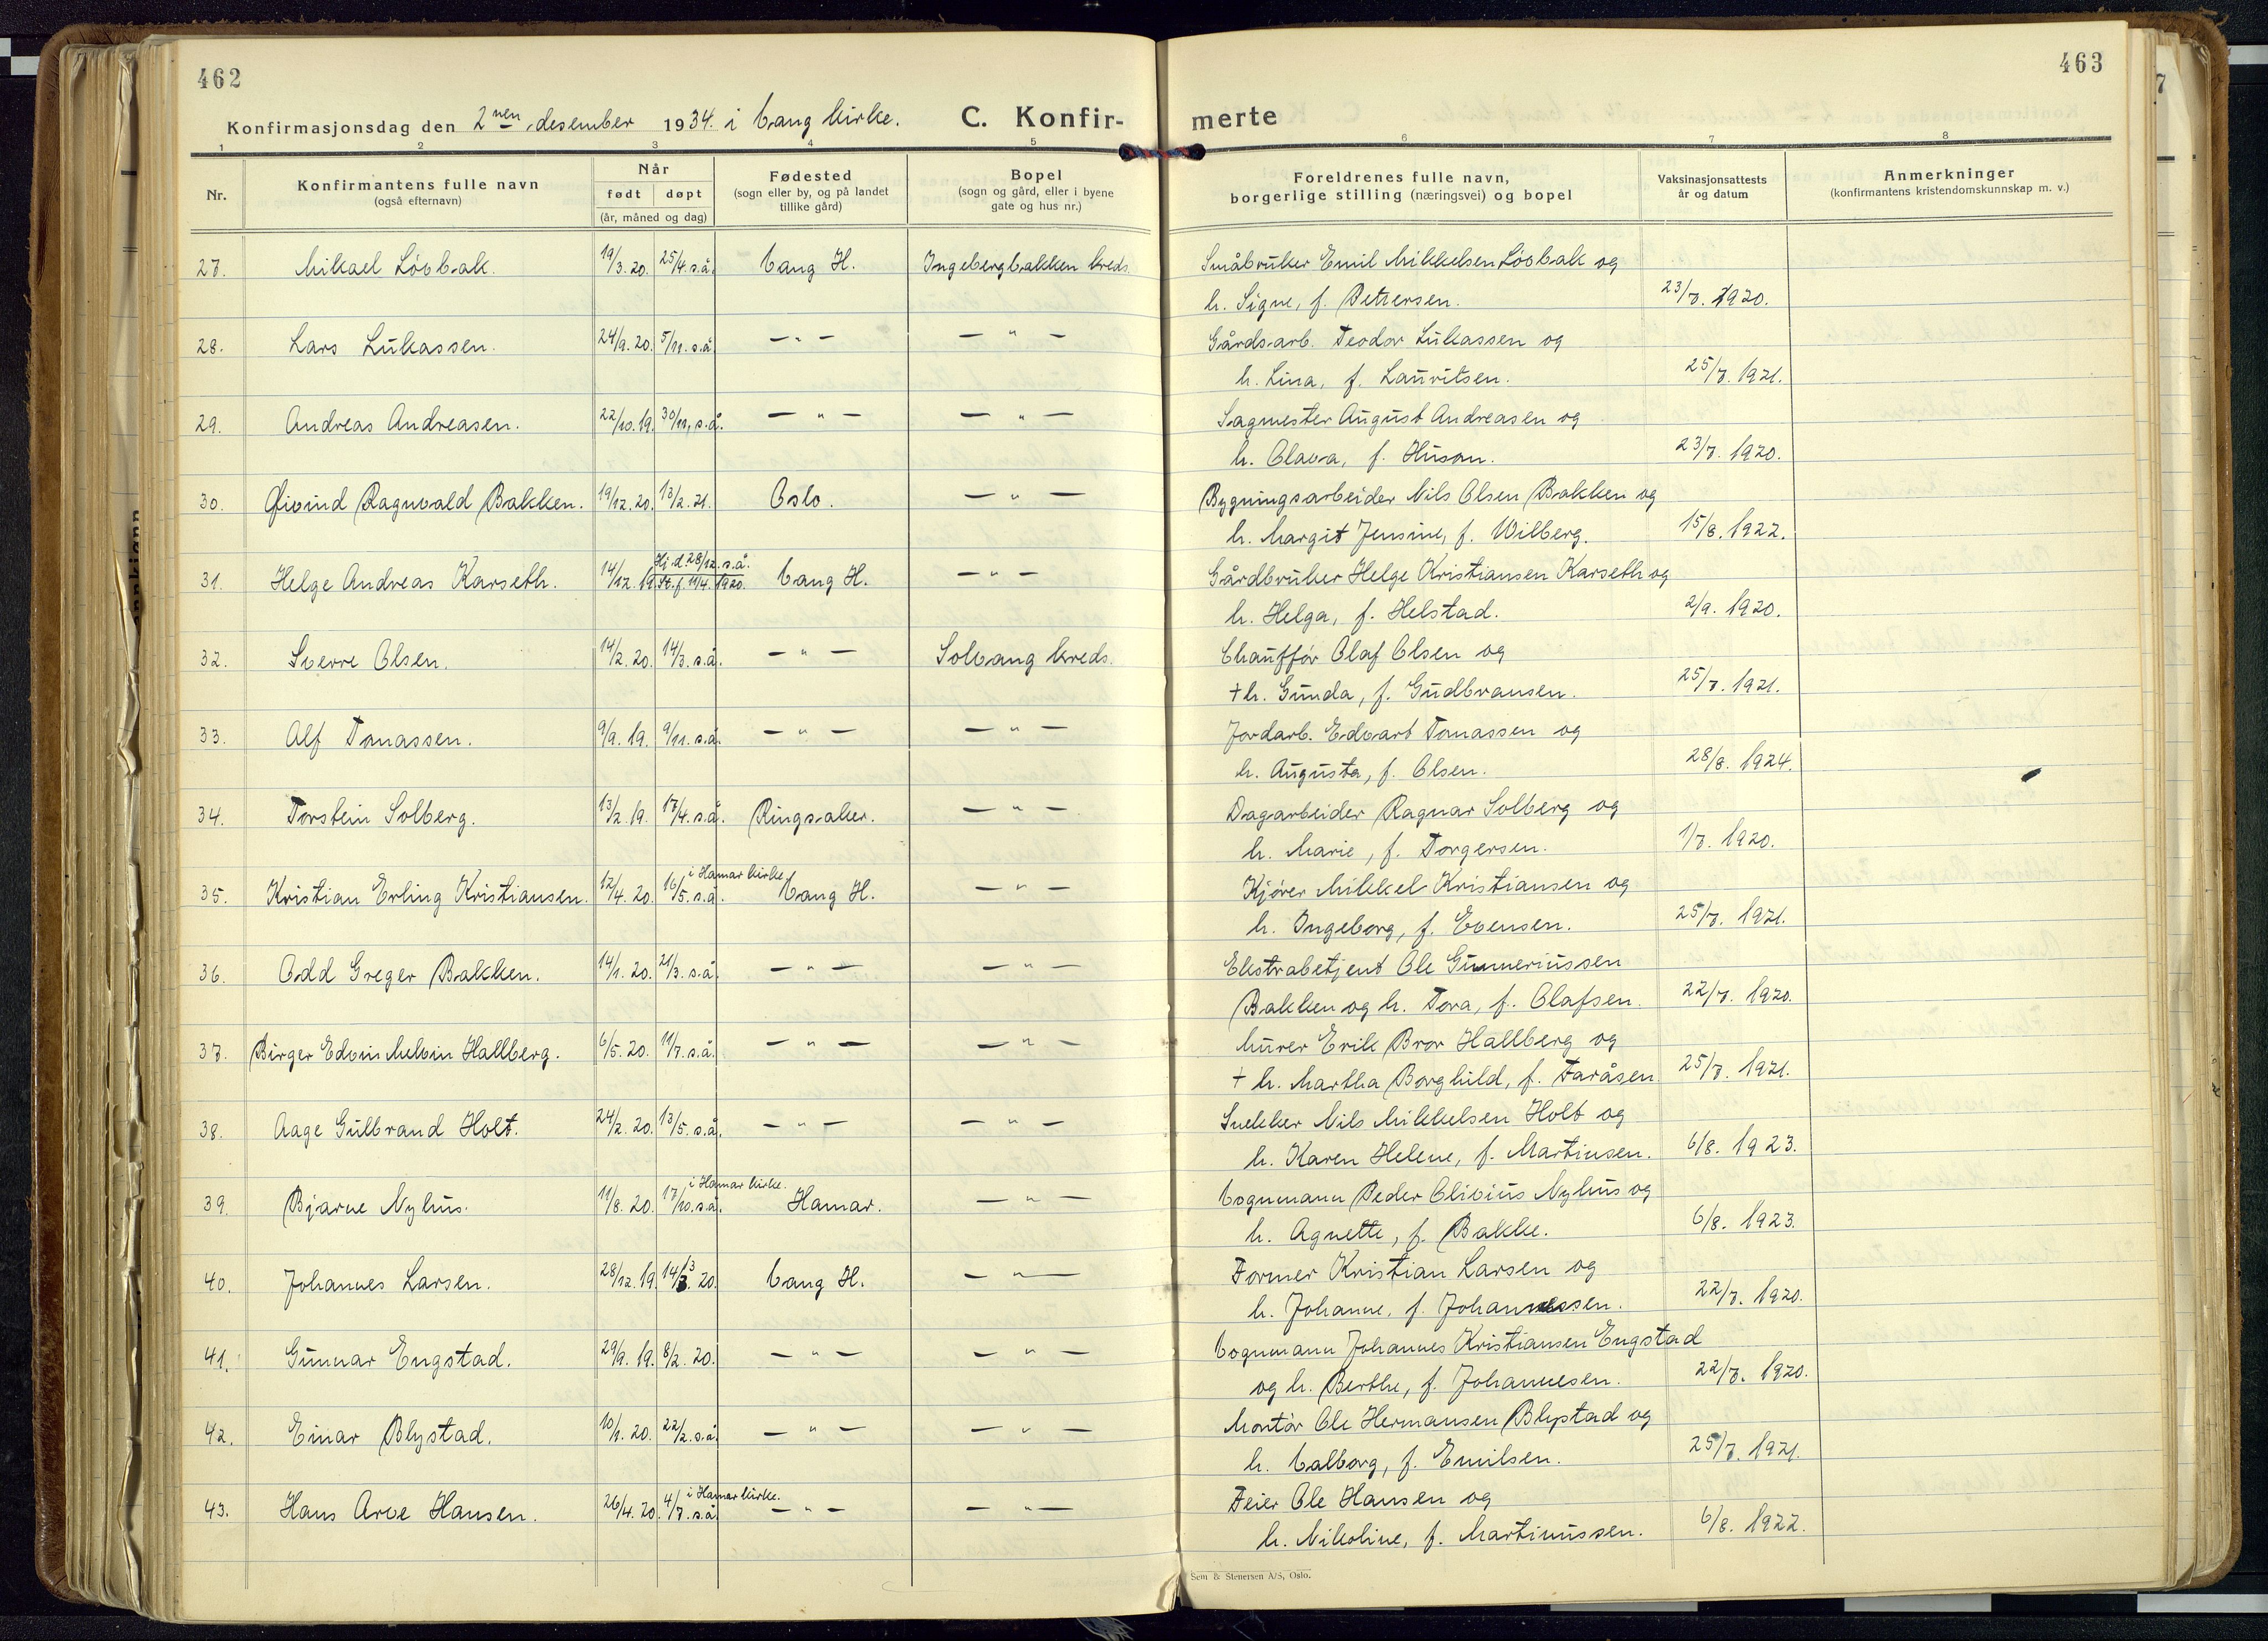 462
Konfirmasjonsdag den 2nen desember 1934. i Vang kirke.
C. Konfir-
1 2 3 4 5
Nr.
Konfirmantens fulle navn
(også efternavn)
Når
født døpt
(år, måned og dag)
Fødested
(sogn eller by, og på landet
tillike gård)
Bopel
(sogn og gård, eller i byene
gate og hus nr.)
27. Mikael Lövbak. 19/3. 20. 25/4. s.å. Vang H. Ingebergbakken kreds.
28. Lars Lukassen. 24/9. 20. 5/11. s.å. — " — — " —
29. Andreas Andreasen. 22/10. 19. 30/11. s.å. — " — — " —
30. Øivind Ragnvald Bakken. 19/12. 20. 13/2. 21. Oslo. — " —
Hj.d. 28/12. s.å.
31. Helge Andreas Karseth. 14/12. 19. St.f. 11/4. 1920. Vang H. — " —
32. Sverre Olsen. 14/2. 20. 14/3. s.å. — " — Solvang kreds.
33. Alf Tomassen. 9/9. 19. 9/11. s.å. — " — — " —
34. Torstein Solberg. 13/2. 19. 17/4. s.å. Ringsaker. — " —
i Hamar kirke.
35. Kristian Erling Kristiansen. 12/4. 20. 16/5. s.å. Vang H. — " —
36. Odd Greger Bakken. 14/1. 20. 21/3. s.å. — " — — " —
37. Birger Edvin Melvin Hallberg. 6/5. 20. 11/7. s.å. — " — — " —
38. Aage Gulbrand Holt. 24/2. 20. 13/5. s.å. — " — — " —
i Hamar kirke.
39. Bjarne Nyhus. 11/8. 20. 17/10. s.å. Hamar. — " —
40. Johannes Larsen. 28/12. 19. 14/3. 20. Vang H. — " —
41. Gunnar Engstad. 29/9. 19. 8/2. 20. — " — — " —
42. Einar Blystad. 10/1. 20. 22/2. s.å. — " — — " —
i Hamar kirke.
43. Hans Arve Hansen. 26/4. 20. 4/7. s.å. — " — — " —
463
merte
6 7 8
Foreldrenes fulle navn,
borgerlige stilling (næringsvei) og bopel
Vaksinasjonsattests
år og datum
Anmerkninger
(konfirmantens kristendomskunnskap m. v.)
Småbruker Emil Mikkelsen Lövbak og
h. Signe, f. Pettersen. 23/7. 1920.
Gårdsarb. Teodor Lukassen og
h. Lina, f. Lauritsen. 25/7. 1921.
Sagmester August Andreasen og
h. Olava, f. Huson. 23/7. 1920.
Bygningsarbeider Nils Olsen Bakken og
h. Margit Jensine, f. Wilberg. 15/8. 1922.
Gårdbruker Helge Kristiansen Karseth og
h. Helga, f. Helstad. 2/9. 1920.
Chaufför Olaf Olsen og
+ h. Gunda, f. Gudbransen. 25/7. 1921.
Jordarb. Edvart Tomassen og
h. Augusta, f. Olsen. 28/8. 1924.
Dagarbeider Ragnar Solberg og
h. Marie, f. Torgersen. 1/7. 1920.
Kjører Mikkel Kristiansen og
h. Ingeborg, f. Evensen. 25/7. 1921.
Ekstrabetjent Ole Gunneriussen
Bakken og h. Tora, f. Olafsen. 22/7. 1920.
Murer Erik Bror Hallberg og
+ h. Martha Borghild, f. Faråsen. 25/7. 1921.
Snekker Nils Mikkelsen Holt og
h. Karen Helene, f. Martinsen. 6/8. 1923.
Vognmann Peder Olivius Nyhus og
h. Agnette, f. Bakke. 6/8. 1923.
Former Kristian Larsen og
h. Johanne, f. Johannessen. 22/7. 1920.
Vognmann Johannes Kristiansen Engstad
og h. Berthe, f. Johannesen. 22/7. 1920.
Montör Ole Hermansen Blystad og
h. Valborg, f. Emilsen. 25/7. 1921.
Feier Ole Hansen og
h. Nikoline, f. Martinussen. 6/8. 1922.
Sem & Stenersen A/S, Oslo.